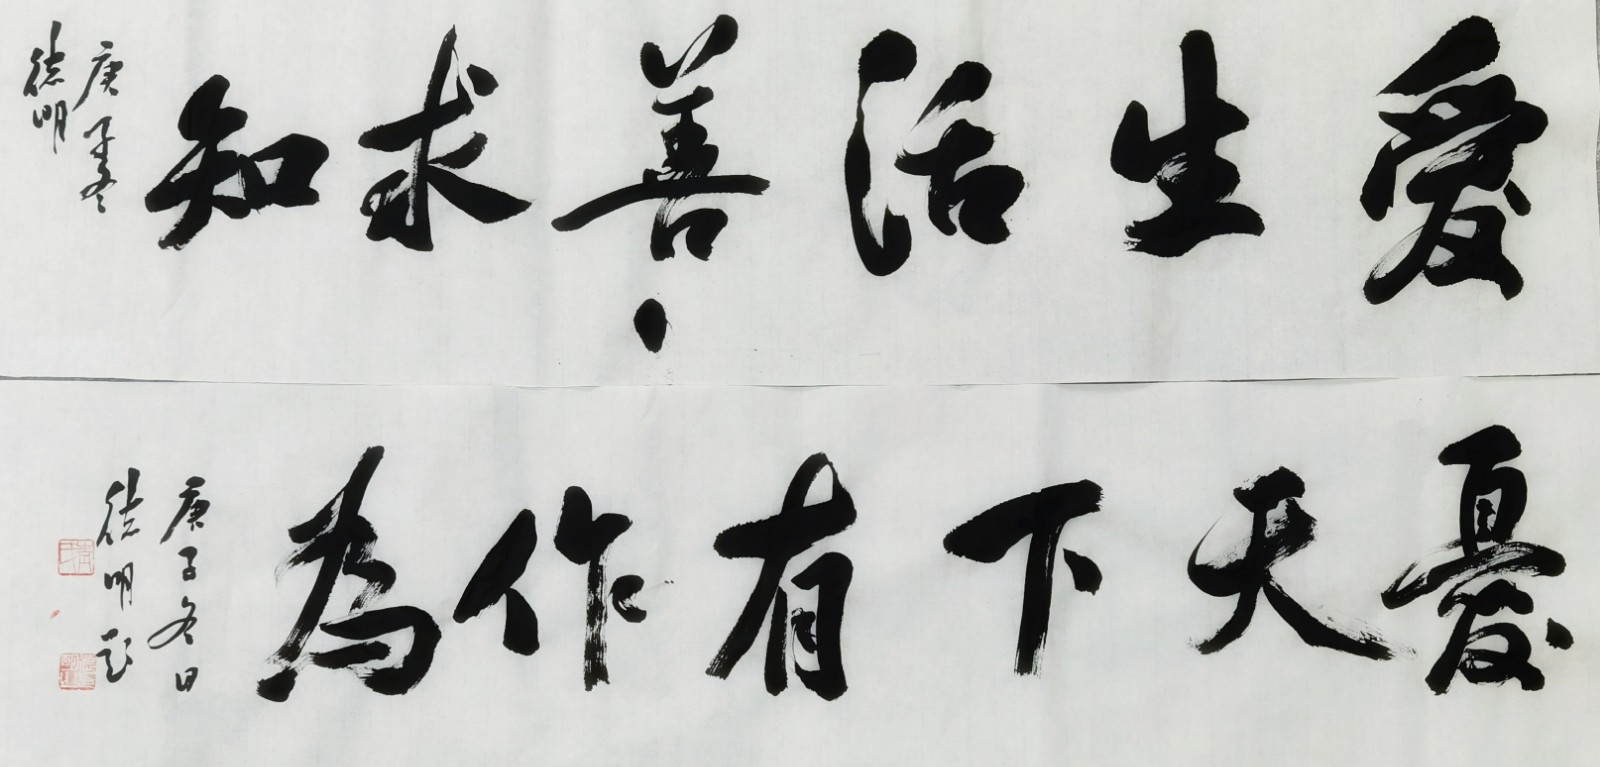 愛生活善求知
庚子冬
德明
憂天下有作為
庚子冬日
德明題